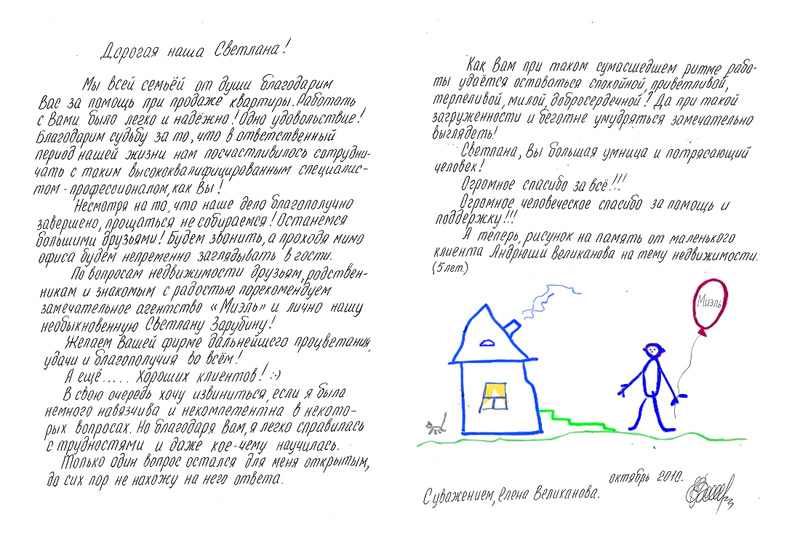 Дорогая наша Светлана!
Мы всей семьёй от души благодарим
Вас за помощь при продаже квартиры. Работать
с Вами было легко и надёжно! Одно удовольствие!
Благодарим судьбу за то, что в ответственный
период нашей жизни нам посчастливилось сотрудни-
чать с таким высококвалифицированным специалис-
том - профессионалом, как Вы!
Несмотря на то, что наше дело благополучно
завершено, прощаться не собираемся! Останемся
большими друзьями! Будем звонить, а проходя мимо
офиса будем непременно заглядывать в гости.
По вопросам недвижимости друзьям, родствен-
никам и знакомым с радостью порекомендуем
замечательное агентство «Миэль» и лично нашу
необыкновенную Светлану Зарубину!
Желаем Вашей фирме дальнейшего процветания,
удачи и благополучия во всём!
А ещё..... Хороших клиентов! :-)
В свою очередь хочу извиниться, если я была
немного навязчива и некомпетентна в некото-
рых вопросах. Но благодаря вам, я легко справилась
с трудностями и даже кое-чему научилась.
Только один вопрос остался для меня открытым,
до сих пор не нахожу на него ответа.
Как Вам при таком сумасшедшем ритме рабо-
ты удаётся оставаться спокойной, приветливой,
терпеливой, милой, добросердечной? Да при такой
загруженности и беготне умудряться замечательно
выглядеть!
Светлана, Вы большая умница и потрясающий
человек!
Огромное спасибо за всё!!!
Огромное человеческое спасибо за помощь и
поддержку!!!
А теперь, рисунок на память от маленького
клиента Андрюши Великанова на тему недвижимости:
(5 лет)
Миэль
октябрь 2010.
С уважением, Елена Великанова.